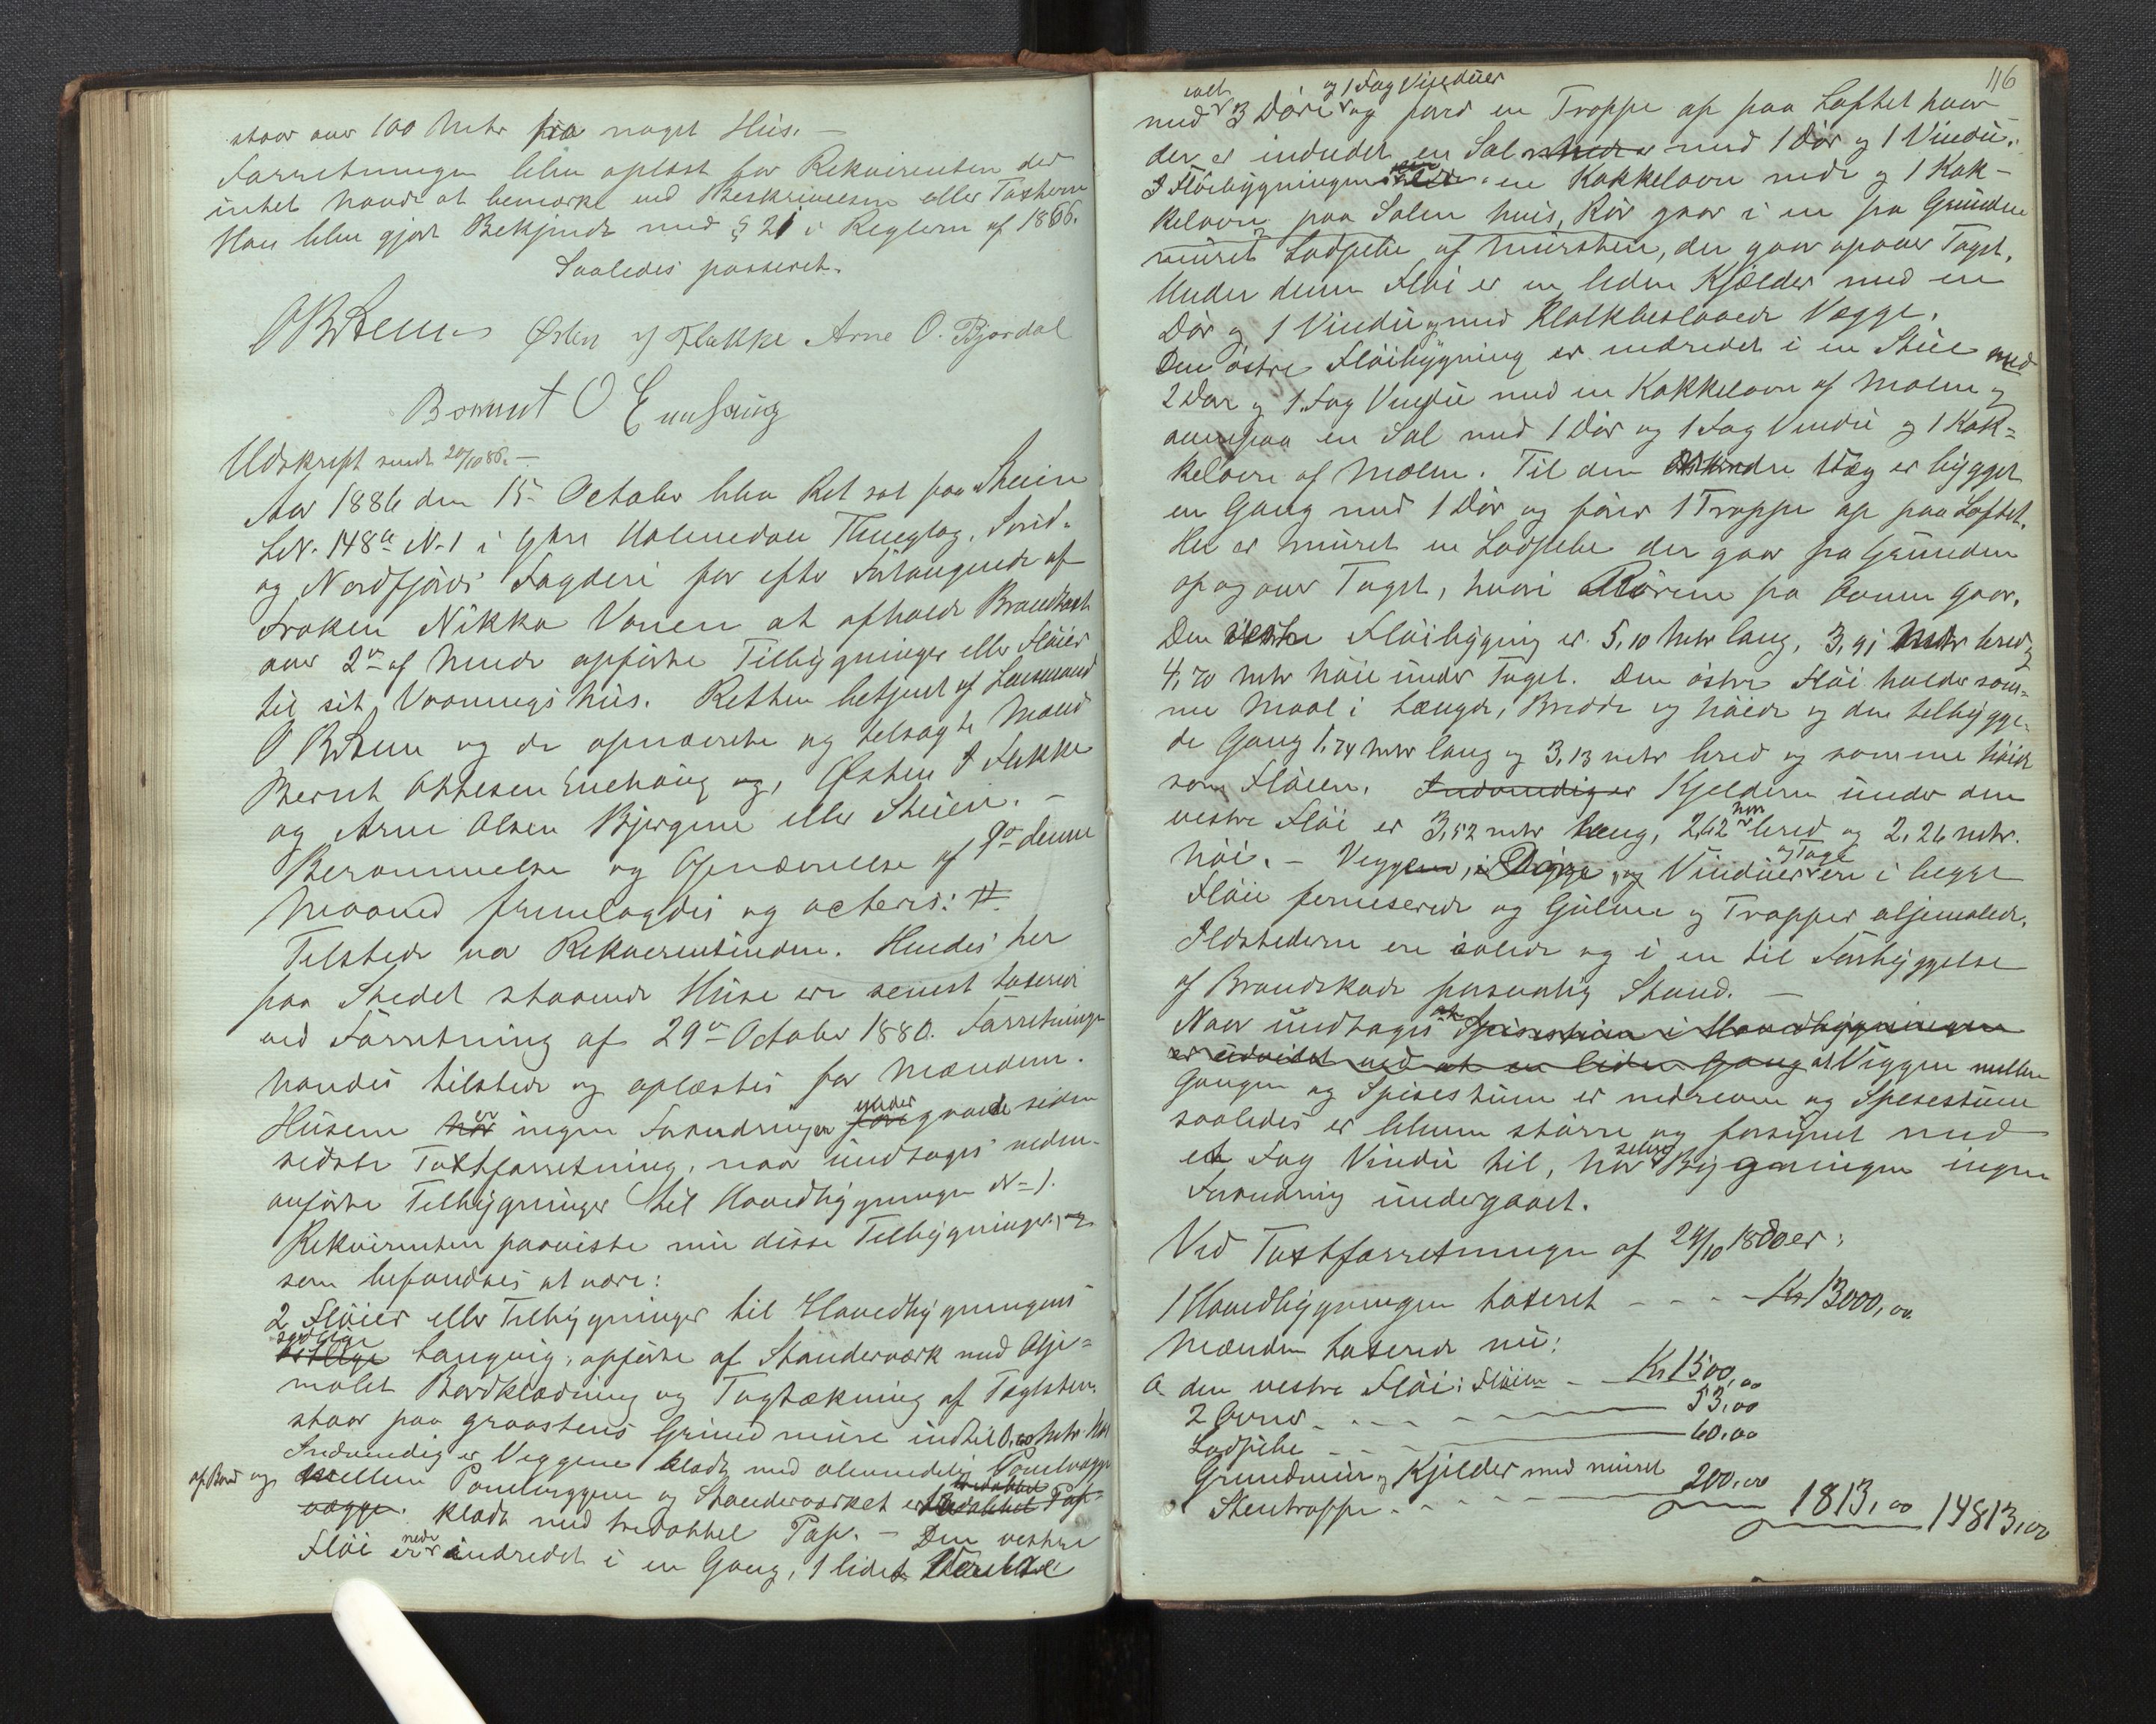 staar over 100 Metr fra noget Hus. —
Forretningen blev oplæst for Rekvirenten der
intet havde at bemærke ved Beskrivelsen eller Taxterne
Han blev gjort Bekjendt med § 21 i Reglerne af 1866.
Saaledes passeret.
O B Steen Østen J Flakke Arne O. Bjordal
Bernt O Enehaug
Udskrift sendt 20/10 86. —
Aar 1886 den 15de October blev Ret sat paa Steien
L.N. 148a N. 1 i Ytre Holmedals Thinglag, Sønd-
og Nordfjords Fogderi for efter Forlangende af
Frøken Nikka Vonen at afholde Brandtaxt
over 2de af hende opførte Tilbygninger eller Fløier
til sit Vaaningshus. Retten betjent af Lensmand
O B Steen og de opnævnte og tilsagte Mænd
Bernt Ottesen Enehaug og, Østen J Flakke
og Arne Olsen Bjergene eller Steien. —
Berammelse og Opnævnelse af 9de denne
Maaned fremlagdes og acteres: #
Tilstede var Rekvirentinden. Hendes her
paa Stedet staaende Huse ere senest taxerede
ved Forretning af 29de October 1880. Forretningen
havdes tilstede og oplæstes for Mændene.
Husene har er ingen Forandringer fore under gaaede siden
sidste Taxtforretning, naar undtages neden-
anførte Tilbygninger til Hovedbygningen N. 1.
Rekvirenten paaviste nu disse Tilbygninger,
som befandtes at være:
2 Fløier eller Tilbygninger til Hovedbygningens
østlige sydlige Langvæg, opførte af Stænderværk med Olje-
malet Bordklædning og Tagtækning af Taglsten,
staar paa graastens Grundmure indtil 0,60 Metr høi
Indvendig er Væggene klædt med almindelig Panelvægge
af Bord og mellem Panelvæggene og Stænderværket er
vægge. klædt med tredobbel Pap. — Den vestre
Fløi er nede indredet i en Gang, 1 lidet Værelse
116
med 3 Døre og 1 Fag Vinduer og fører en Trappe op paa Loftet hvor
der er indredet en Sal med 1 Dør og 1 Vindu.
I Fløibygningen er en Kakkelovn nede og 1 Kak-
kelovn paa Salen hvis, Rør gaar i en fra Grunden
muret Ladpibe af Mursten, der gaar opover Taget.
Under denne Fløi er en liden Kjælder med en
Dør og 1 Vindu og med Kalkbeslaaede Vægge.
Den østre Fløibygning er indredet i en Stue med
2 Dør og 1 Fag Vindu med en Kakkelovn af Malm og
ovenpaa en Sal med 1 Dør og 1 Fag Vindu og 1 Kak-
kelovn af Malm. Til den Væg er bygget
en Gang med 1 Dør og fører 1 Trappe op paa Loftet.
Her er muret en Ladpibe der gaar fra Grunden
op og over Taget, hvori Rørene fra Ovnen gaar.
Den vestre Fløibygning er 5,10 Metr lang, 3,91 Metr bred og
4,70 Metr høie under Taget. Den østre Fløi holder sam-
me Maal i Længde, Bredde og høide og den tilbygge-
de Gang 1,74 Metr lang og 3,13 metr bred og samme høide
som Fløien. Indvendig er Kjelderen under den
vestre Fløi er 3,52 metr lang, 2,62 Metr bred og 2,26 metr.
høi. — Veggene, Døre, og Vinduer og Tage ere i begge
Fløie ferniserede og Gulvene og Trapper oljemalede.
Ildstederne ere solide og i en til Forebyggelse
af Brandskade forsvarlig Stand. —
Naar undtages at Spisestuen i Hovedbygningen
er udvidet ved at en liden Gang at Væggen mellem
Gangen og Spisestuen er nedreven og Spisestuen
saaledes er bleven større og forsynet med
et Fag Vindu til, har selve Bygningen ingen
Forandring undergaaet.
Ved Taxtforretningen af 29/10 1880 er:
1 Hovedbygningen taxeret - - - - Kr 13000,00
Mændene taxerede nu:
a den vestre Fløi: Fløien - Kr 1500,00
2 Ovne - - - - 53,00
Ladpibe - - - 60,00
Grundmur og Kjelder med muret
Stentrappe - - - - - 200,00 1813,00 14813,00